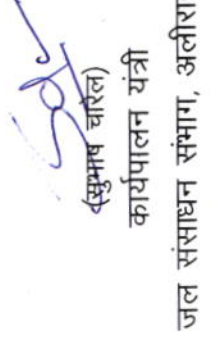 (सुभाष चारेल)
कार्यपालन यंत्री
जल संसाधन संभाग,